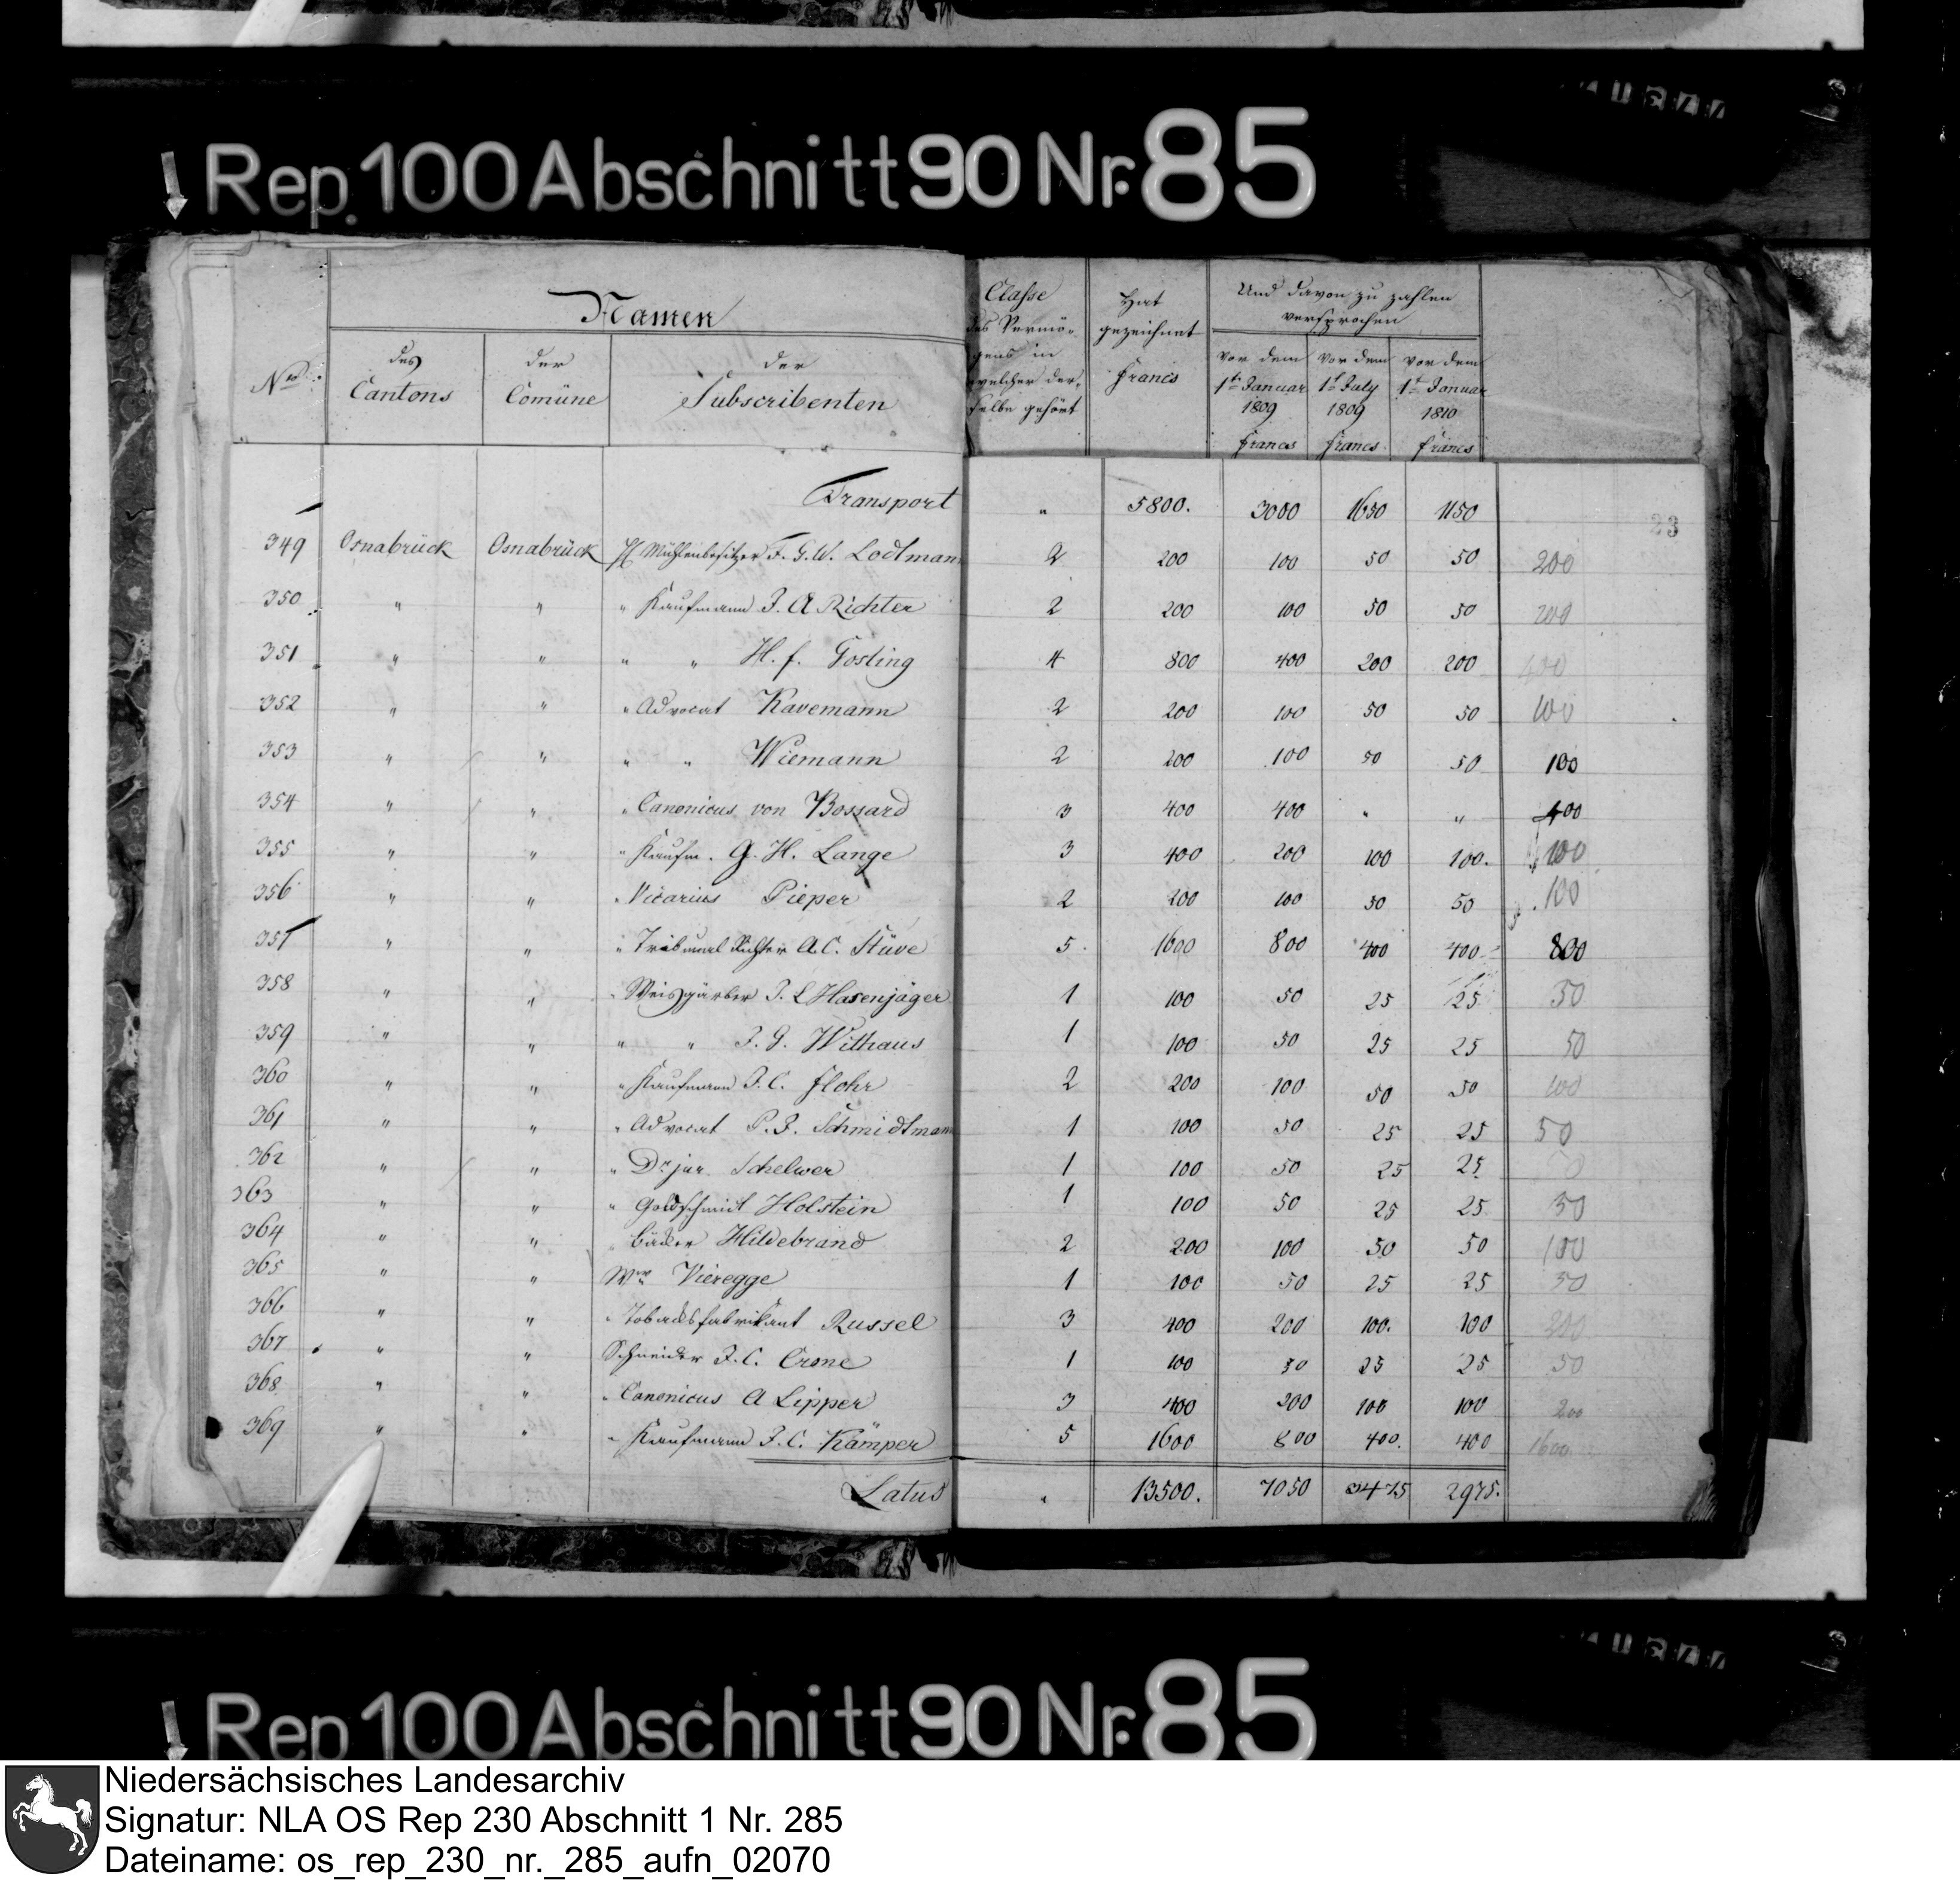 Rep. 100 Abschnitt 90 Nr. 85
Namen
No.
des Cantons
der Comüne
der Subscribenten
Classe des Vermögens in welcher derselbe gehört
Hat gezeichnet Francs
Und davon zu zahlen versprochen
vor dem 1t Januar 1809 Francs
vor dem 1t July 1809 Francs
vor dem 1t Januar 1810 Francs
23
Transport " 5800. 3000 1650 1150
349 Osnabrück Osnabrück H Mühlenbesitzer F. G. W. Lodtman 2 200 100 50 50 200
350 " " " Kaufmann J. A Richter 2 200 100 50 50 200
351 " " " " H. f. Gosling 4 800 400 200 200 400
352 " " " Advocat Kavemann 2 200 100 50 50 100
353 " " " " Wiemann 2 200 100 50 50 100
354 " " " Canonicus von Bossard 3 400 400 " " 400
355 " " " Kaufm. G. H. Lange 3 400 200 100 100. 100
356 " " " Vicarius Pieper 2 200 100 50 50 100
357 " " " Tribunal Richter A. C. Stüve 5 1600 800 400 400 800
358 " " " Weisgärber J. L Hasenjäger 1 100 50 25 25 50
359 " " " " J. G. Withaus 1 100 50 25 25 50
360 " " " Kaufmann J. C. Flohr 2 200 100 50 50 100
361 " " " Advocat P. J. Schmidtmann 1 100 50 25 25 50
362 " " " Dr jur. Schelwer 1 100 50 25 25
363 " " " Goldschmidt Holstein 1 100 50 25 25 50
364 " " " Bäcker Hildebrand 2 200 100 50 50 100
365 " " Wwe Vieregge 1 100 50 25 25 50
366 " " " Tobacksfabrikant Russel 3 400 200 100. 100 200
367 " " Schneider J. C. Crone 1 100 50 25 25 50
368 " " " Canonicus A Lipper 3 400 200 100 100 200
369 " " " Kaufmann J. C. Kämper 5 1600 800 400. 400 1600.
Latus " 13500. 7050 3475 2975.
Rep 100 Abschnitt 90 Nr. 85
Niedersächsisches Landesarchiv
Signatur: NLA OS Rep 230 Abschnitt 1 Nr. 285
Dateiname: os_rep_230_nr._285_aufn_02070